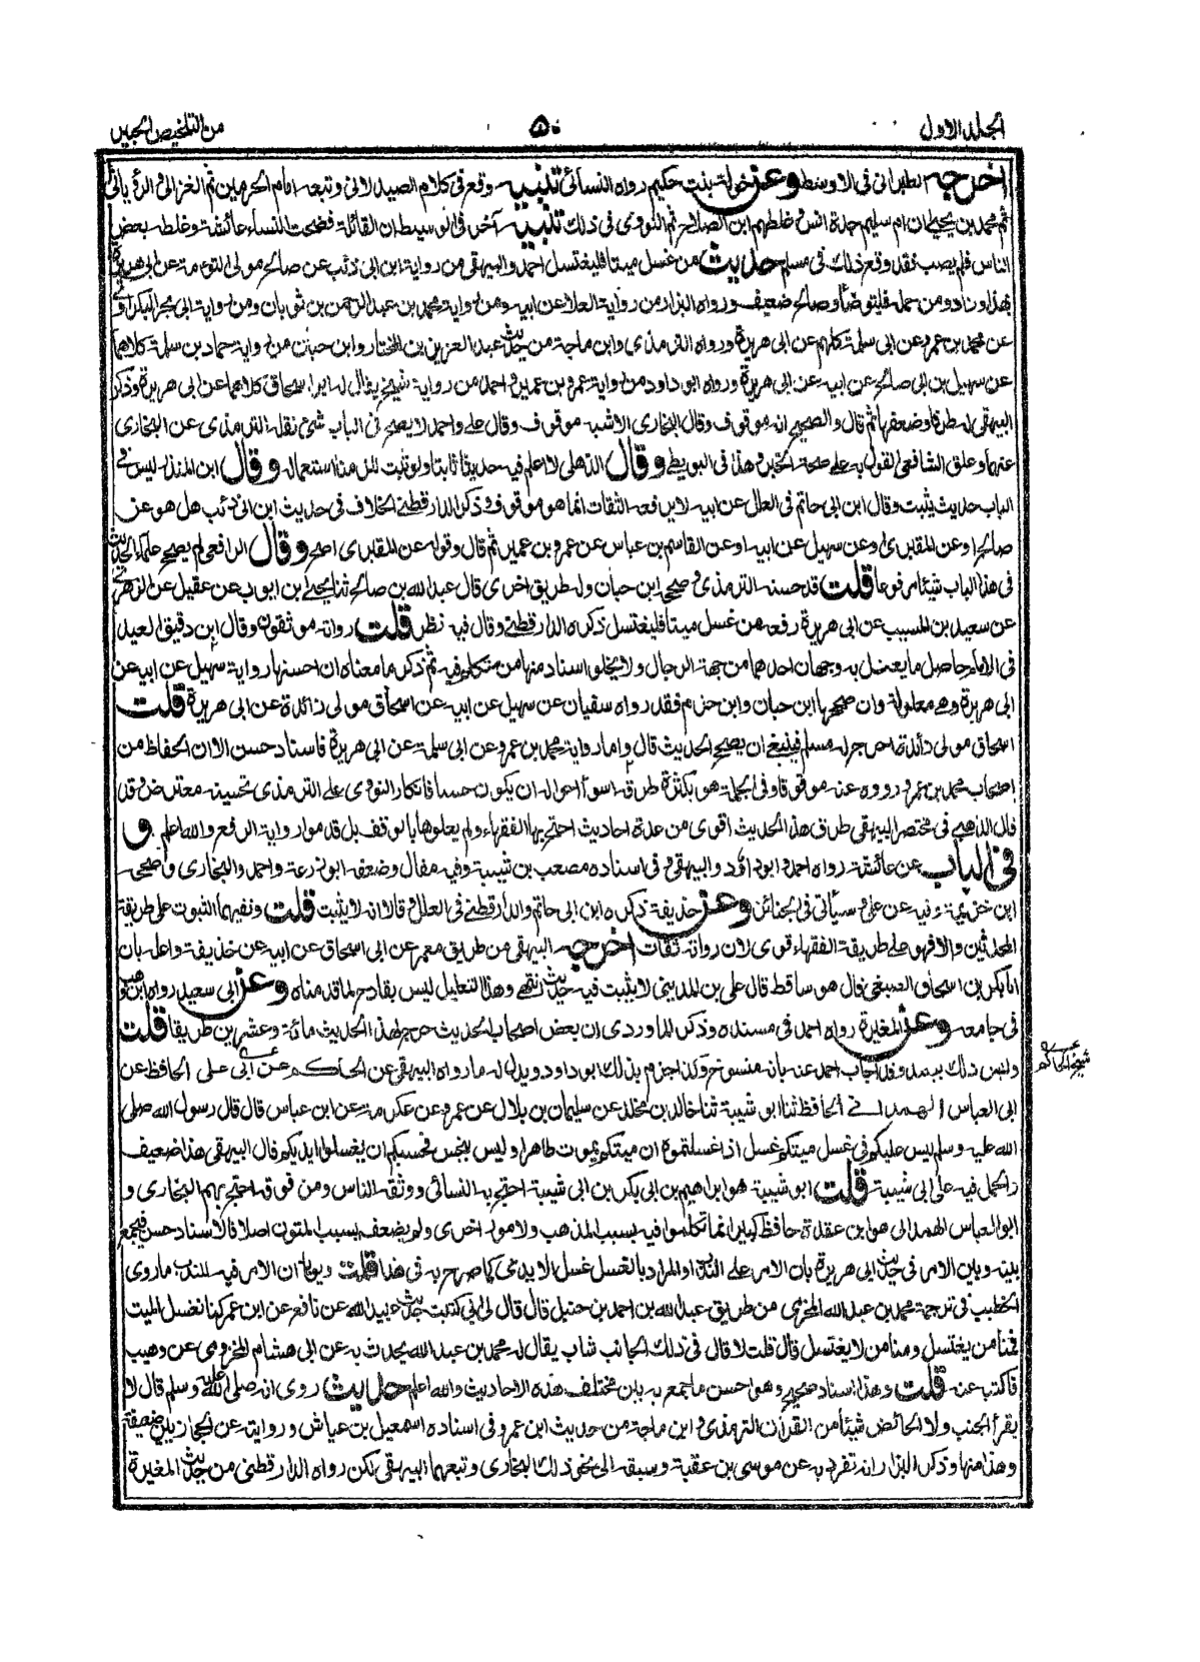 الجلد الاول ٥٠ من التلخيص الحبير
اخرجه الطبرانى فى الاوسط وعن خولة بنت حكيم رواه النسائى تنبيه وقع فى كلام الصيدلانى وتبعه امام الحرمين ثم الغزالى و الرؤيانى
ثم محمد بن يحيى ان ام سليم جدة انس و غلطهم ابن الصلاح ثم النووى فى ذلك تنبيه آخر فى الوسيط ان القائلة فضحت النساء عائشة وغلطه بعض
الناس فلم يصب فقد وقع ذلك فى مسلم حديث من غسل ميتا فليغتسل احمد والبيهقى من رواية ابن ابى ذئب عن صالح مولى التوءمة عن ابى هريرة
بهذا وزاد ومن حمله فليتوضأ وصالح ضعيف ورواه البزار من رواية العلاء عن ابيه ومن رواية محمد بن عبد الرحمن بن ثوبان ومن رواية ابى بحر البكراوى
عن محمد بن عمرو عن ابى سلمة كلهم عن ابى هريرة ورواه الترمذى وابن ماجة من حديث عبد العزيز بن المختار وابن حبان من رواية حماد بن سلمة كلاهما
عن سهيل بن ابى صالح عن ابيه عن ابى هريرة ورواه ابو داود من رواية عمرو بن عمير و احمد من رواية شيخ يقال له ابو اسحاق كلاهما عن ابى هريرة وذكر
البيهقى له طرقا وضعفها ثم قال والصحيح انه موقوف وقال البخارى الاشبه موقوف وقال على واحمد لا يصح فى الباب شئ نقله الترمذى عن البخارى
عنهما وعلق الشافعى القول به على صحة الخبر وهذا فى البويطى وقال الذهلى لا اعلم فيه حديثا ثابتا ولو ثبت للزمنا استعماله وقال ابن المنذر ليس فى
الباب حديث يثبت وقال ابن ابى حاتم فى العلل عن ابيه لا يرفعه الثقات انما هو موقوف وذكر الدارقطنى الخلاف فى حديث ابن ابى ذئب هل هو عن
صالح او عن المقبرى او عن سهيل عن ابيه او عن القاسم بن عباس عن عمرو بن عمير ثم قال وقوله عن المقبرى اصح وقال الرافعى لم يصحح علماء الحديث
فى هذا الباب شيئا مرفوعا قلت قد حسنه الترمذى و صححه ابن حبان وله طريق اخرى قال عبد الله بن صالح ثنا يحيى بن ايوب عن عقيل عن الزهرى
عن سعيد بن المسيب عن ابى هريرة رفعه من غسل ميتا فليغتسل ذكره الدارقطنى وقال فيه نظر قلت رواته موثقون وقال ابن دقيق العيد
فى الامام حاصل ما يعتل به وجهان احدهما من جهة الرجال ولا يخلو اسناد منها من متكلم فيه ثم ذكر ما معناه ان احسنها رواية سهيل عن ابيه عن
ابى هريرة وهى معلولة وان صححها ابن حبان وابن حزم فقد رواه سفيان عن سهيل عن ابيه عن اسحاق مولى زائدة عن ابى هريرة قلت
اسحاق مولى زائدة اخرج له مسلم فينبغى ان يصحح الحديث قال واما رواية محمد بن عمرو عن ابى سلمة عن ابى هريرة فاسناد حسن الا ان الحفاظ من
اصحاب محمد بن عمرو رووه عنه موقوفا وفى الجملة هو بكثرة طرقه اسوأ احواله ان يكون حسنا فانكار النووى على الترمذى تحسينه معترض وقد
قال الذهبى فى مختصر البيهقى طرق هذا الحديث اقوى من عدة احاديث احتج بها الفقهاء ولم يعلوها بالوقف بل قدموا رواية الرفع والله اعلم و
فى الباب عن عائشة رواه احمد و ابو داؤد والبيهقى و فى اسناده مصعب بن شيبة وفيه مقال وضعفه ابو زرعة واحمد والبخارى وصححه
ابن خزيمة وفيه عن على وسيأتى فى الجنائز وعن حذيفة ذكره ابن ابى حاتم والدارقطنى فى العلل وقالا انه لا يثبت قلت ونفيهما الثبوت على طريقة
المحدثين والا فهو على طريقة الفقهاء قوى لان رواته ثقات اخرجه البيهقى من طريق معمر عن ابى اسحاق عن ابيه عن حذيفة واعله بان
ابا بكر بن اسحاق الصبغى قال هو ساقط قال على بن المدينى لا يثبت فيه حديث انتهى وهذا التعليل ليس بقادح لما قدمناه وعن ابى سعيد رواه ابن وهب
فى جامعه وعن المغيرة رواه احمد فى مسنده وذكر الماوردى ان بعض اصحاب الحديث خرج لهذا الحديث مائة وعشرين طريقا قلت
وليس ذلك ببعيد وقد اجاب احمد عنه بانه منسوخ وكذا جزم بذلك ابو داود ويدل له ما رواه البيهقى عن الحاكم عن ابى على الحافظ عن
ابى العباس الهمدانى الحافظ ثنا ابو شيبة ثنا خالد بن مخلد عن سليمان بن بلال عن عمرو عن عكرمة عن ابن عباس قال قال رسول الله صلى
الله عليه وسلم ليس عليكم فى غسل ميتكم غسل اذا غسلتموه ان ميتكم يموت طاهرا وليس بنجس فحسبكم ان يغسلوا ايديكم قال البيهقى هذا ضعيف
والحمل فيه على ابى شيبة قلت ابو شيبة هو ابراهيم بن ابى بكر بن ابى شيبة احتج به النسائى ووثقه الناس ومن فوقه احتج بهم البخارى و
ابو العباس الهمدانى هو ابن عقدة حافظ كبير انما تكلموا فيه بسبب المذهب ولامور اخرى ولم يضعف بسبب المتون اصلا فالاسناد حسن فيجمع
بينه وبين الامر فى حديث ابى هريرة بان الامر على الندب او المراد بالغسل غسل الايدى كما صرح به فى هذا قلت ويؤيد ان الامر فيه للندب ما روى
الخطيب فى ترجمة محمد بن عبد الله المخرمى من طريق عبد الله بن احمد بن حنبل قال قال لى ابى كتبت حديث عبيد الله عن نافع عن ابن عمر كنا نغسل الميت
فمنا من يغتسل ومنا من لا يغتسل قال قلت لا قال فى ذلك الجانب شاب يقال له محمد بن عبد الله يحدث به عن ابى هشام المخزومى عن وهيب
فاكتب عنه قلت وهذا اسناد صحيح وهو احسن ما جمع به بين مختلف هذه الاحاديث والله اعلم حديث روى انه صلى الله عليه وسلم قال لا
يقرأ الجنب ولا الحائض شيئا من القرآن الترمذى و ابن ماجة من حديث ابن عمر وفى اسناده اسمعيل بن عياش وروايته عن الحجازيين ضعيفة
وهذا منها وذكر البزار انه تفرد به عن موسى بن عقبة وسبقه الى نحو ذلك البخارى وتبعهما البيهقى لكن رواه الدارقطنى من حديث المغيرة